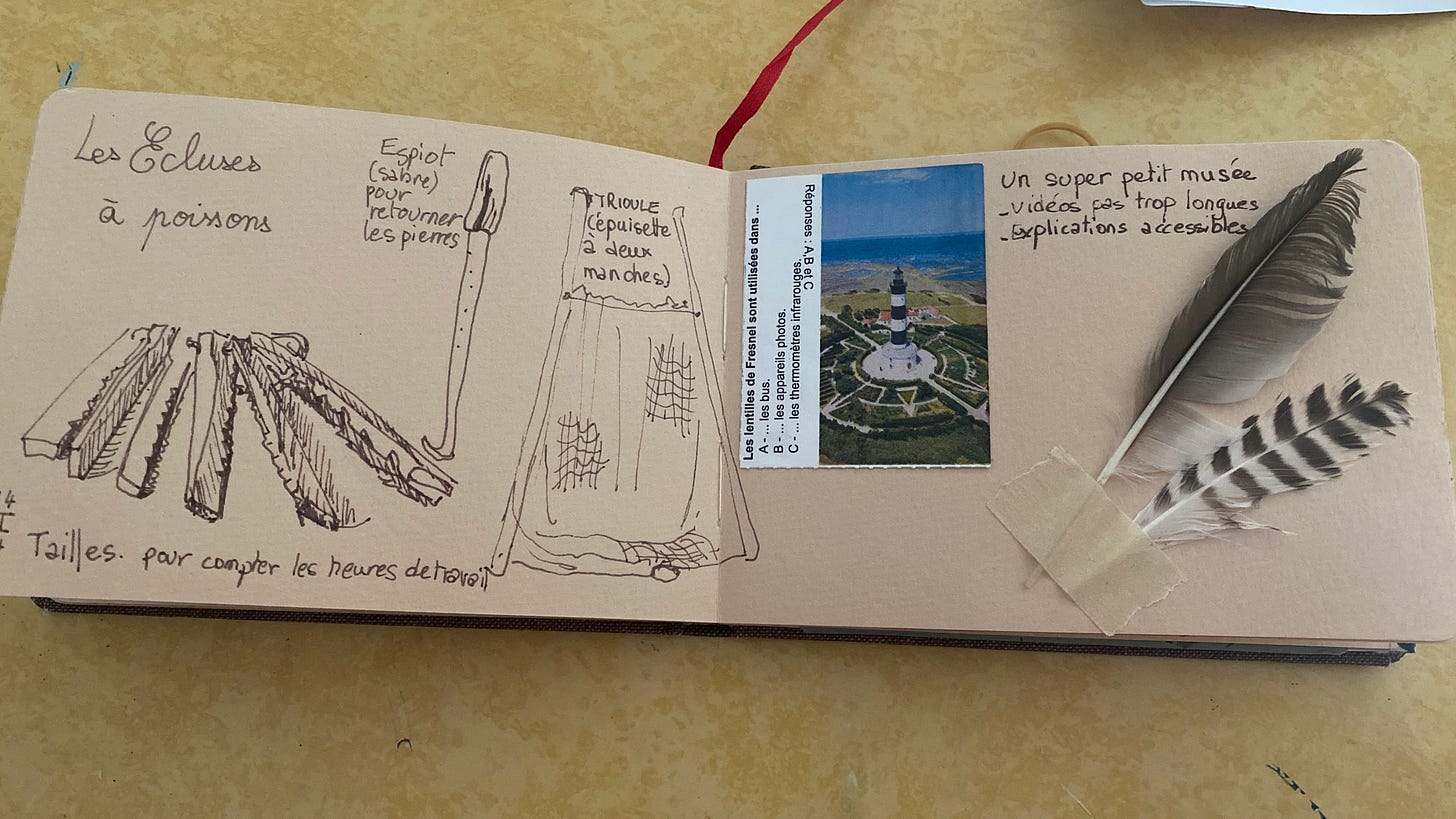 Les Écluses
à poissons
Espiot
(sabre)
pour
retourner
les pierres
TRIOULE
(épuisette
à deux
manches)
Tailles. pour compter les heures de travail
Les lentilles de Fresnel sont utilisées dans ...
A - ... les bus.
B - ... les appareils photos.
C - ... les thermomètres infrarouges.
Réponses : A,B et C
Un super petit musée
-vidéos pas trop longues
-Explications accessibles